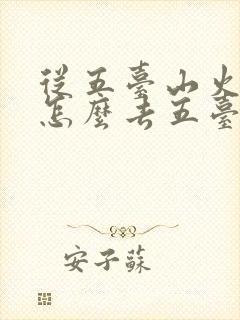 從五臺山火
怎麼去五臺
安子蘇